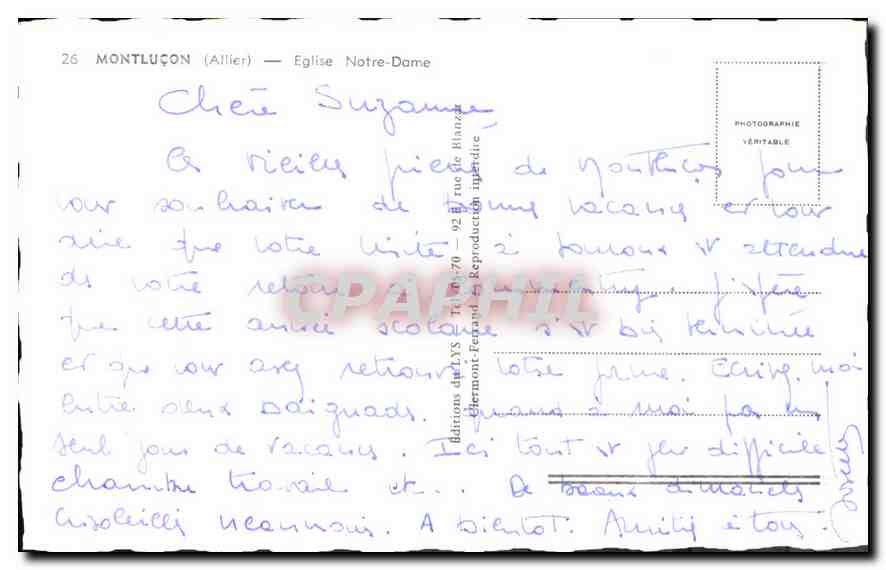 26 MONTLUÇON (Allier) — Eglise Notre-Dame
PHOTOGRAPHIE
VÉRITABLE
Chère Suzanne
Ces vieilles pierres de Montluçon pour
vous souhaiter de bonnes vacances et vous
dire que votre visite à est attendue
de votre retour J'espère
que cette année scolaire s'est bien terminée
et que vous avez retrouvé votre forme. Ecrivez moi
entre deux baignades. quand à moi pas un
seul jour de vacances. Ici tout est difficile
chambre travail etc... De beaux dimanches
ensoleillés néanmoins. A bientôt. Amitiés à tous.
Editions du LYS — Tél. 70 — 92 rue de Blanzat
Clermont-Ferrand — Reproduction interdite
CPAPHIL